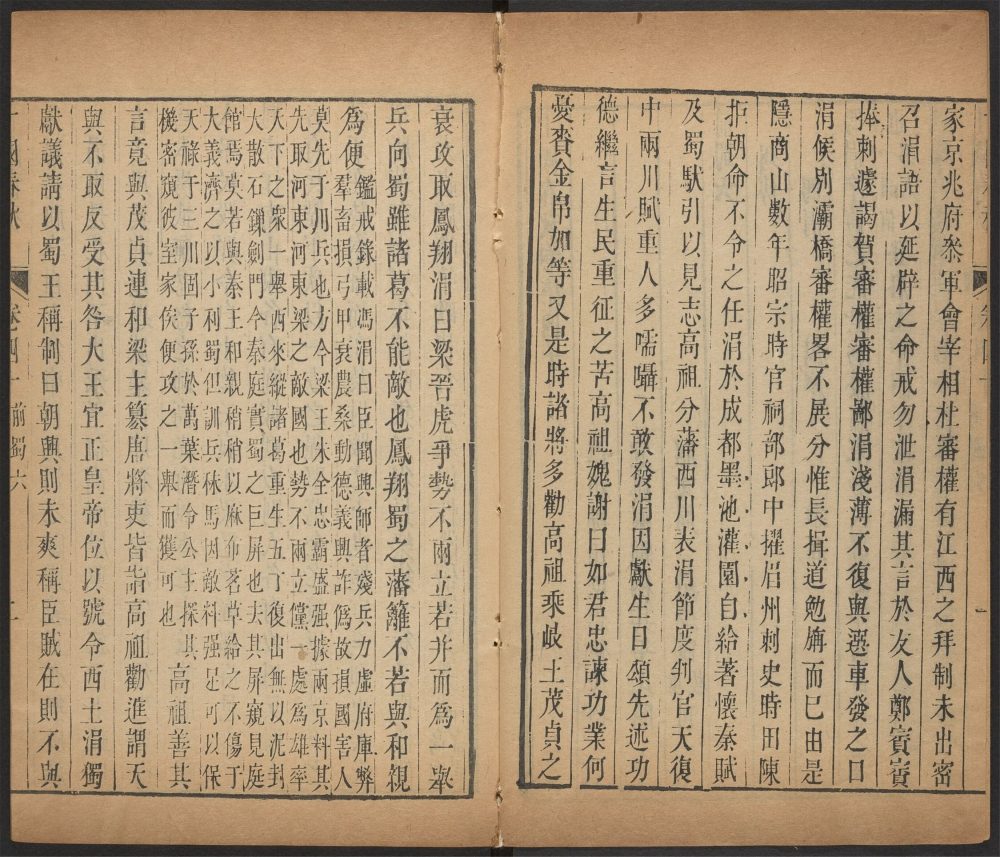 家京兆府叅軍會宰相杜審權有江西之拜制未出密
召涓語以延辟之命戒勿泄涓漏其言於友人鄭賨賨
捧刺遽謁賀審權審權鄙涓淺薄不復與選車發之日
涓候別灞橋審權畧不展分惟長揖道勉旃而已由是
隱商山數年昭宗時官祠部郎中擢眉州刺史時田陳
拒朝命不令之任涓於成都墨池灌園自給著懷秦賦
及蜀馱引以見志高祖分藩西川表涓節度判官天復
中兩川賦重人多嚅囁不敢發涓因獻生日頌先述功
德繼言生民重征之苦高祖媿謝曰如君忠諫功業何
憂賚金帛加等又是時諸將多勸高祖乘岐王茂貞之
衰攻取鳳翔涓曰梁晉虎爭勢不兩立若并而爲一舉
兵向蜀雖諸葛不能敵也鳳翔蜀之藩籬不若與和親
爲便
鑑戒錄載馮涓曰臣聞興師者殘兵力虛府庫弊
羣畜損弓甲衰農桑動德義興詐僞故損國害人
莫先于川兵也方今梁王朱全忠霸盛强據兩京料其
先取河東河東梁之敵國也勢不兩立儻一處爲雄率
天下之衆一舉西來縱諸葛重生五丁復出無以泥封
大散石鏁劍門今秦庭實蜀之巨屏也夫其屏窺見庭
館焉莫若與秦王和親稍稍以麻布茗草給之不傷于
大義濟之以小利蜀但訓兵秣馬因敵料强足可以保
天祿于三川固子孫於萬葉潛令公主探其
機密窺彼室家俟便攻之一舉而獲可也
高祖善其
言竟與茂貞連和梁主簒唐將吏皆詣高祖勸進謂天
與不取反受其咎大王宜正皇帝位以號令西土涓獨
獻議請以蜀王稱制曰朝興則未爽稱臣賊在則不與
十國春秋
卷四十 前蜀六
二